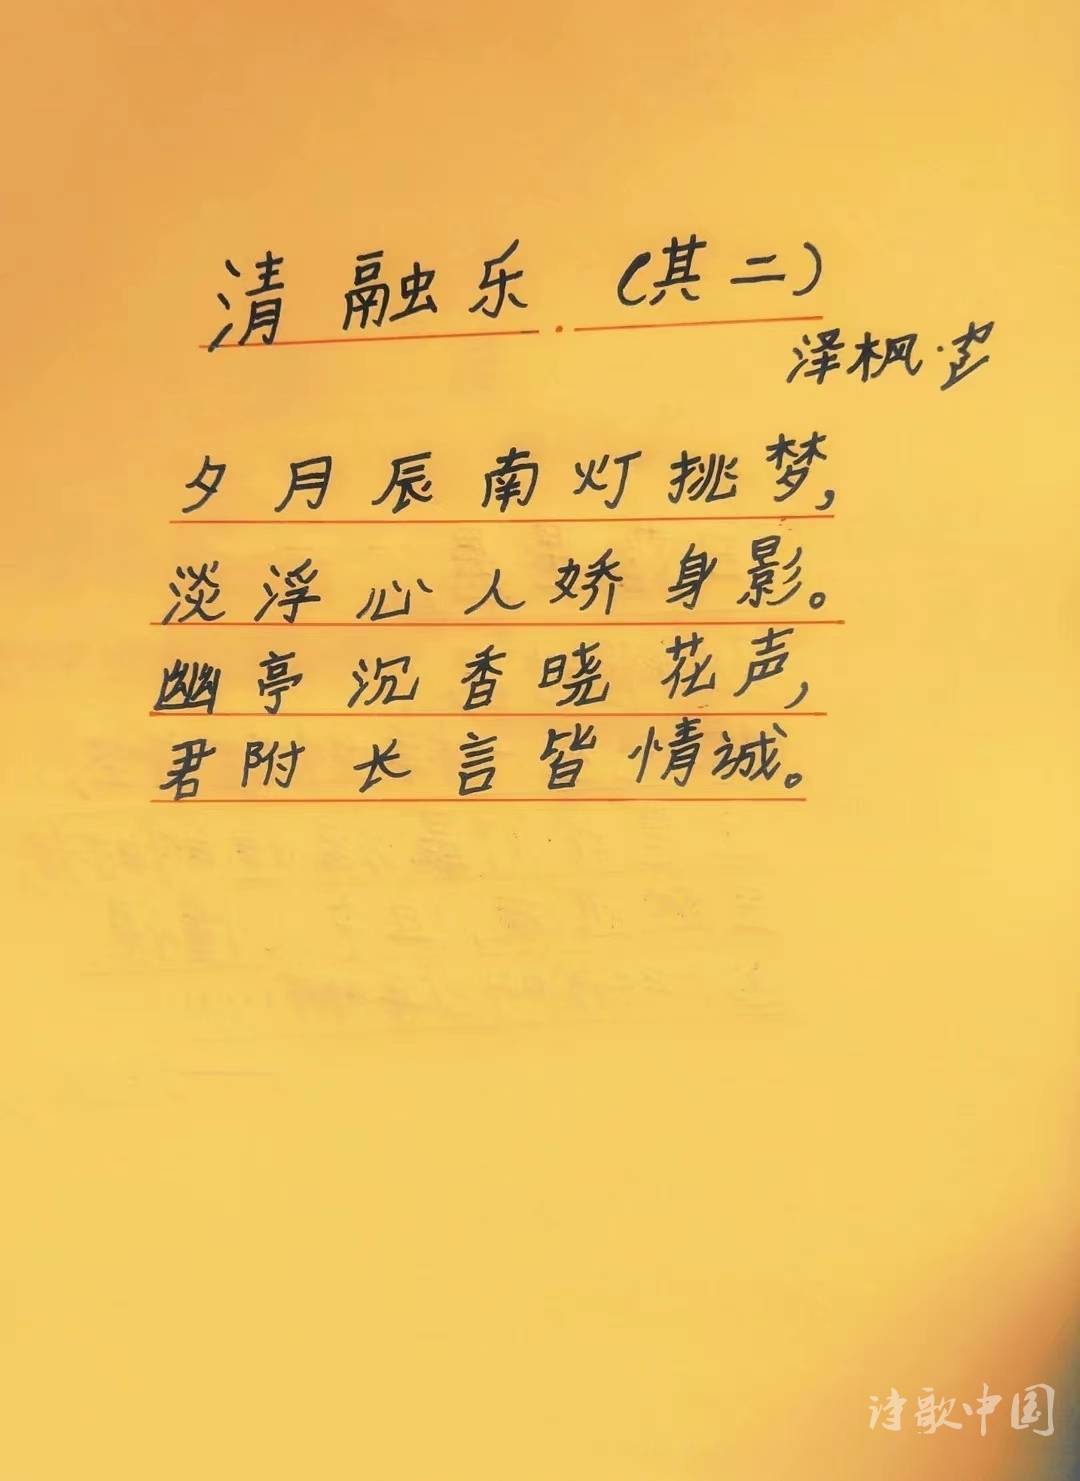 清融乐·(其二)
泽枫·
夕月辰南灯挑梦,
淡浮心人娇身影。
幽亭沉香晓花声,
君附长言皆情诚。
诗歌中国